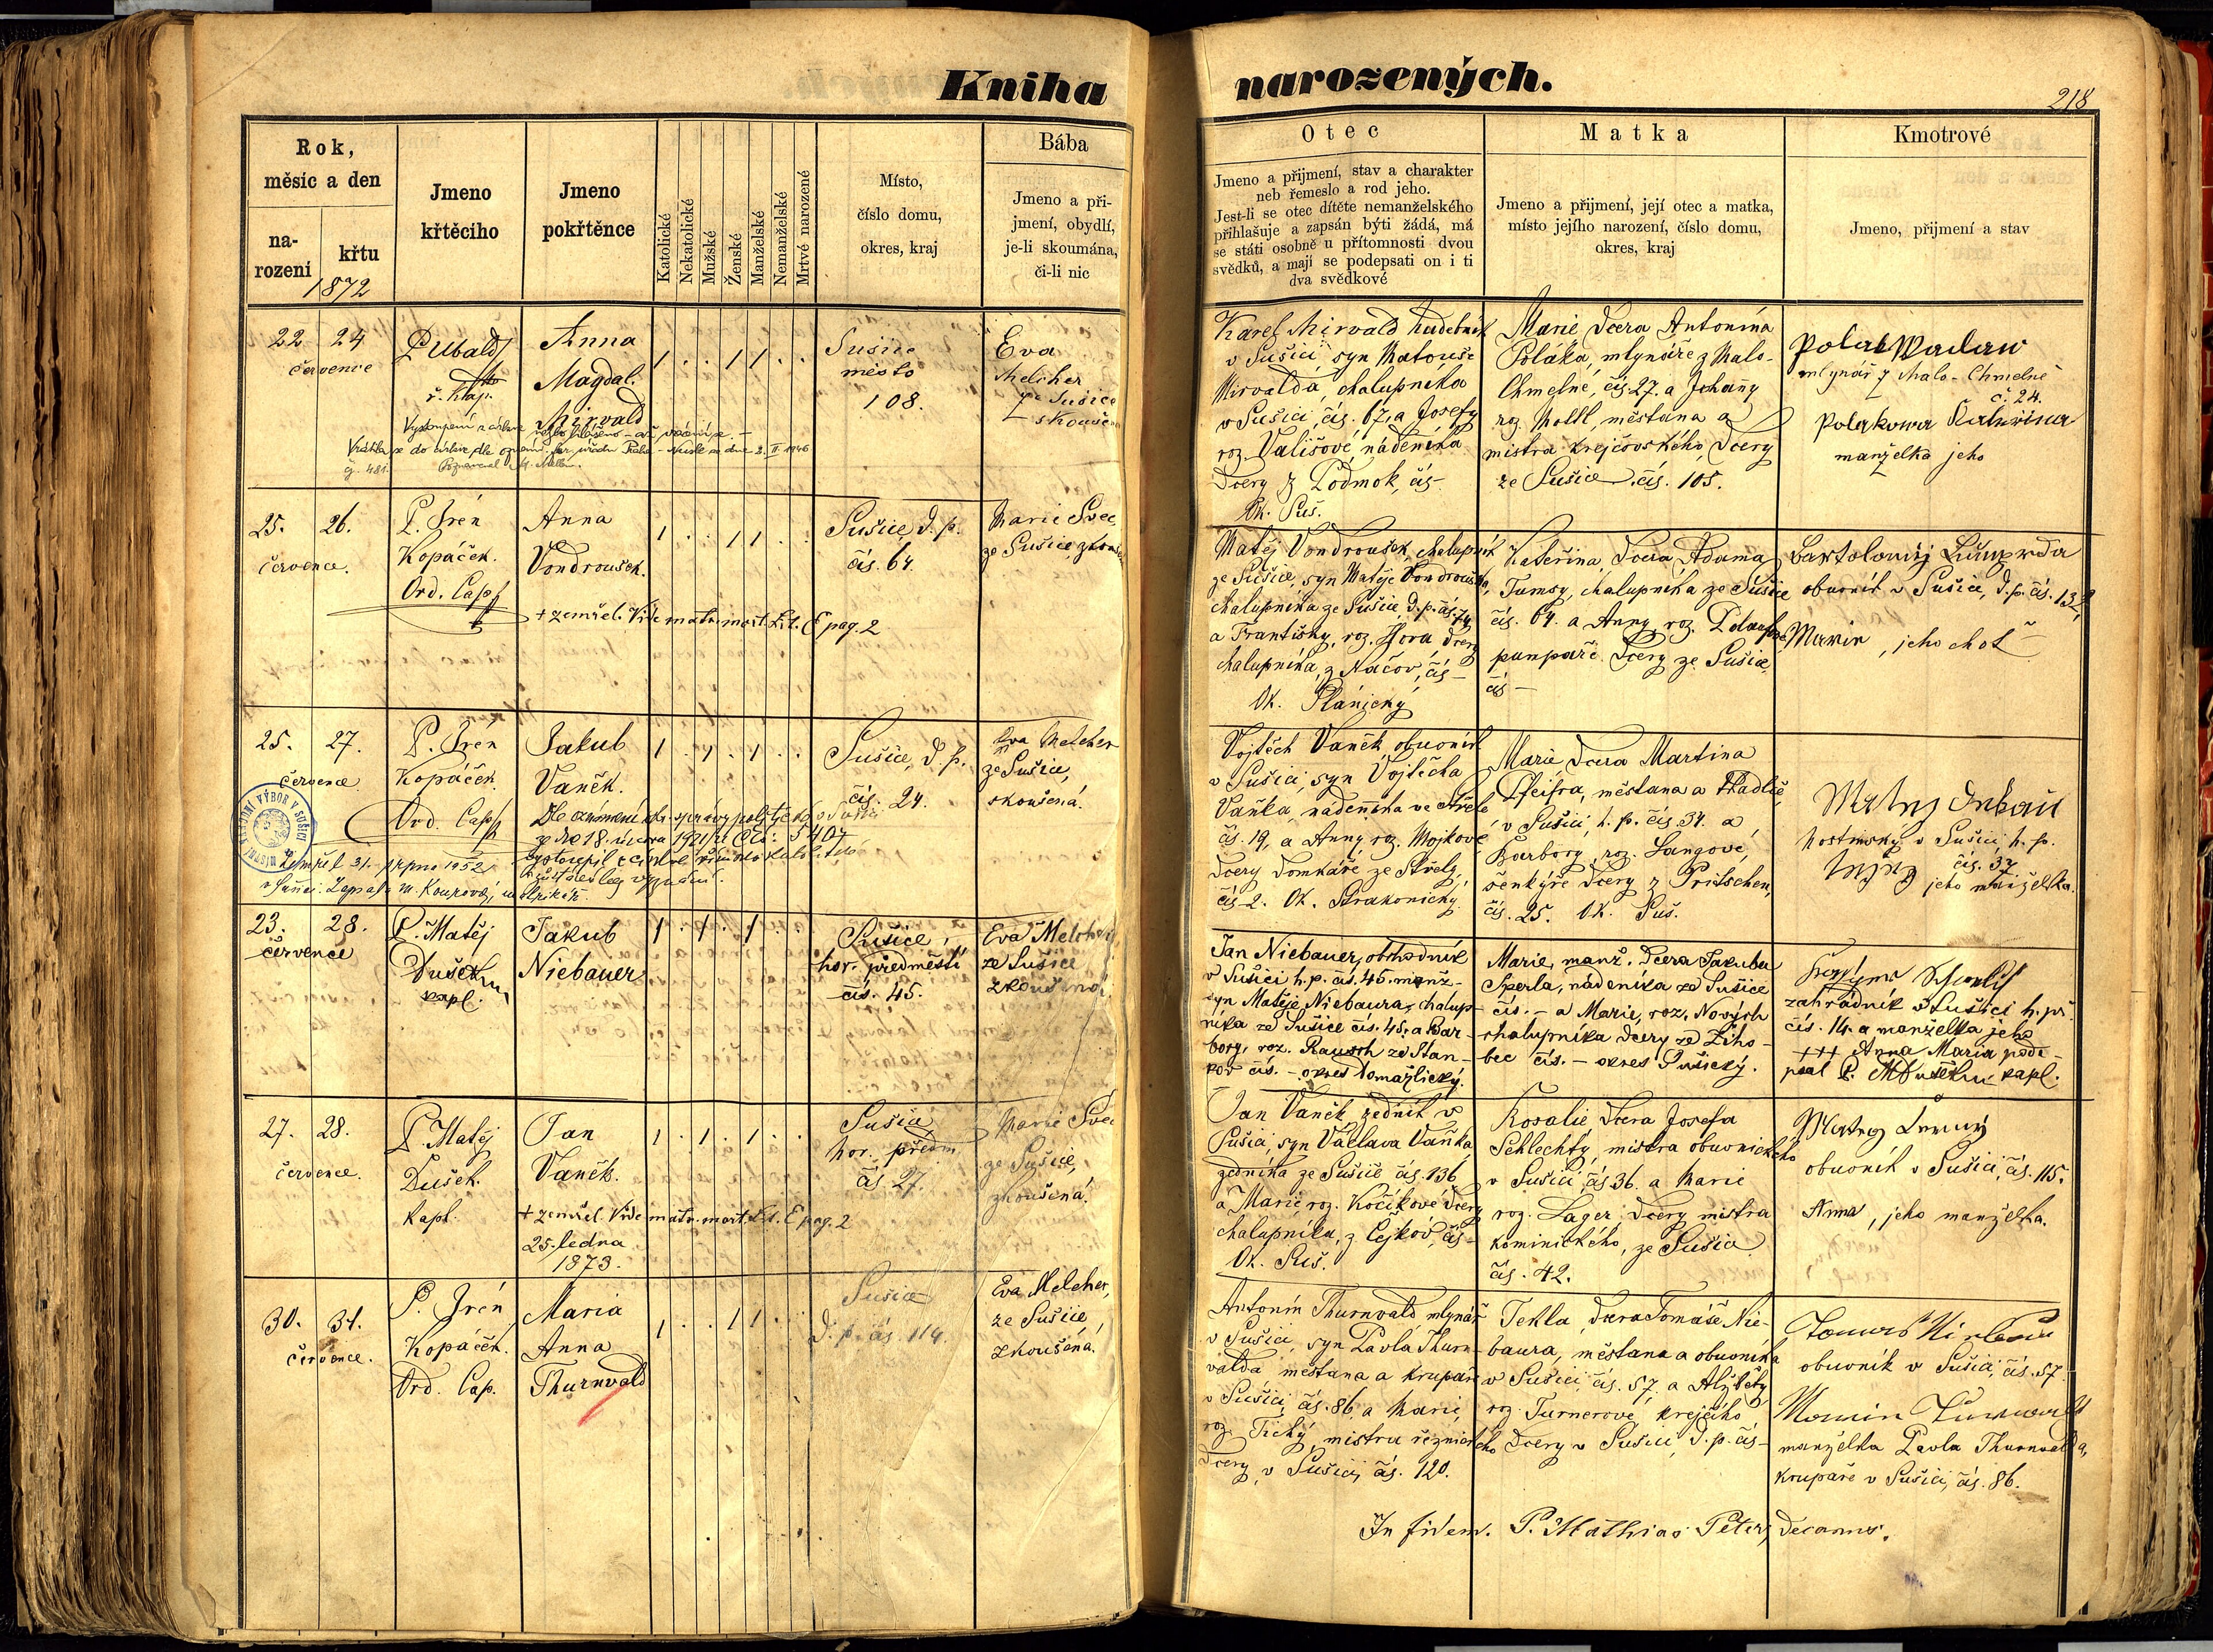 Kniha
narozených.
218
Rok,
měsíc a den
na-
rození
křtu
1872
Jmeno
křtěcího
Jmeno
pokřtěnce
Katolické
Nekatolické
Mužské
Ženské
Manželské
Nemanželské
Mrtvé narozené
Místo,
číslo domu,
okres, kraj
Bába
Jmeno a při-
jmení, obydlí,
je-li skoumána,
či-li nic
Otec
Jmeno a přijmení, stav a charakter
neb řemeslo a rod jeho.
Jest-li se otec dítěte nemanželského
přihlašuje a zapsán býti žádá, má
se státi osobně u přítomnosti dvou
svědků, a mají se podepsati on i ti
dva svědkové
Matka
Jmeno a přijmení, její otec a matka,
místo jejího narození, číslo domu,
okres, kraj
Kmotrové
Jmeno, přijmení a stav
22 24
července
P. Ubald
Anna
Magdal.
Mirvald
1 . . 1 1 . .
Sušice
město
108.
Eva
Melcher
ze Sušice
Karel Mirvald hudebník
v Sušici syn Matouše
Mirvalda, chalupníka
v Sušici, čís. 67, a Josefy
roz. Vališové, nádeníka
dcery z Podmok, čís-
Ok. Suš.
Marie dcera Antonína
Poláka, mlynáře z Malo-
Chmelné, čís. 27. a Johany
roz. Mottl, měšťana a
mistra krejčovského, dcery
ze Sušice. čís. 105.
mlynář z Malo-Chmelné
č. 24.
manželka jeho
25. 26.
července.
P. Irén
Kopáček.
Ord. Cap.
Anna
Vondroušek.
1 . . 1 1 . .
Sušice, d. p.
čís. 64.
Marie Švec
ze Sušice
+ zemřel. Vide matr. mort. Lit. E pag. 2
Matěj Vondroušek, chalupník
ze Sušice, syn Matěje Vondrouška,
chalupníka ze Sušice, d. p. čís. 74,
a Františky, roz. Hora, dcery
chalupníka, z Načov, čís-
Ok. Plánický
Kateřina, dcera Adama
Tumsy, chalupníka ze Sušice
čís. 64. a Anny, roz.
pumpaře dcery ze Sušice,
čís -
Bartoloměj
obuvník v Sušici, d. p. čís. 132
, jeho choť
25. 27.
července
P. Irén
Kopáček.
Ord. Cap.
Jakub
Vaněk.
1 . 1 . 1 . .
Sušice, d. p.
čís. 24.
Eva Melcher
ze Sušice,
skoušená.
Zemřel 31. srpna 1952
Vojtěch Vaněk, obuvník
v Sušici, syn Vojtěcha
Vaňka, nádenníka ve Střele
čís. 19, a Anny, roz. Mojkové
dcery domkáře ze Střely,
čís-2. Ok. Strakonický
Marie dcera Martina
Pfeifra, měšťana a tkadlce,
v Sušici, h. p. čís 34. a
Barbory, roz. Langové,
šenkýře dcery z Pritschen,
čís. 25. Ok. Suš.
hostinský v Sušici, h. p.
čís. 37
jeho manželka.
23. 28.
července
P. Matěj
Dušek
kapl.
Jakub
Niebauer
1 . 1 . 1 . .
Sušice,
hor. předměstí
čís. 45.
Eva Melcher
ze Sušice
zkoušená
Jan Niebauer, obchodník
v Sušici h. p. čís. 45. manž.
syn Matěje Niebaura, chalup-
níka ze Sušice čís. 45. a Bar-
bory, roz. Rausch ze Stan-
kov čís. - okres Domažlický.
Marie, manž. dcera Jakuba
Šperla, nádeníka ze Sušice
čís. - a Marie, roz. Nových
chalupníka dcery ze Žiho-
bec čís. - okres Sušický.
zahradník v Sušici h. př.
čís. 14. a manželka jeho
+++ Anna Maria pode-
psal P. M. Dušek kapl.
27. 28.
července.
P. Matěj
Dušek.
kapl.
Jan
Vaněk.
1 . 1 . 1 . .
Sušice
hor. předm
čís. 27.
Marie Švec
ze Sušice,
zkoušená.
+ zemřel. Vide matr. mort. Lit. E pag. 2
25. ledna
1873.
Jan Vaněk, zedník v
Sušici, syn Václava Vaňka
zedníka ze Sušice čís. 136
a Marie, roz. Kočíkové dcery
chalupníka, z Cejkov, čís-
Ok. Suš.
Rosalie dcera Josefa
Schlechty, mistra obuvnického
v Sušici, čís 36. a Marie
roz. Sager dcery mistra
kominického, ze Sušice
čís. 42.
obuvník v Sušici, čís. 115.
Anna, jeho manželka.
30. 31.
července.
P. Irén
Kopáček.
Ord. Cap.
Maria
Anna
Thurnvald
1 . . 1 1 . .
Sušice
d. p. čís. 114.
Eva Melcher,
ze Sušice,
zkoušená.
Antonín Thurnvald mlynář
v Sušici, syn Pavla Thurn-
valda, měšťana a krupaře
v Sušici, čís. 86, a Marie,
roz. Tichý, mistra řeznického
dcery, v Sušici, čís. 120.
Tekla, dcera Tomáše Nie-
baura, měšťana a obuvníka
v Sušici, čís. 57, a Alžběty
roz. Turnerové, krejčího
dcery v Sušici, d. p. čís-
obuvník v Sušici, čís. 57
manželka Pavla Thurnvalda,
krupaře v Sušici, čís. 86.
In fidem. P. Mathias Peters, decanus.